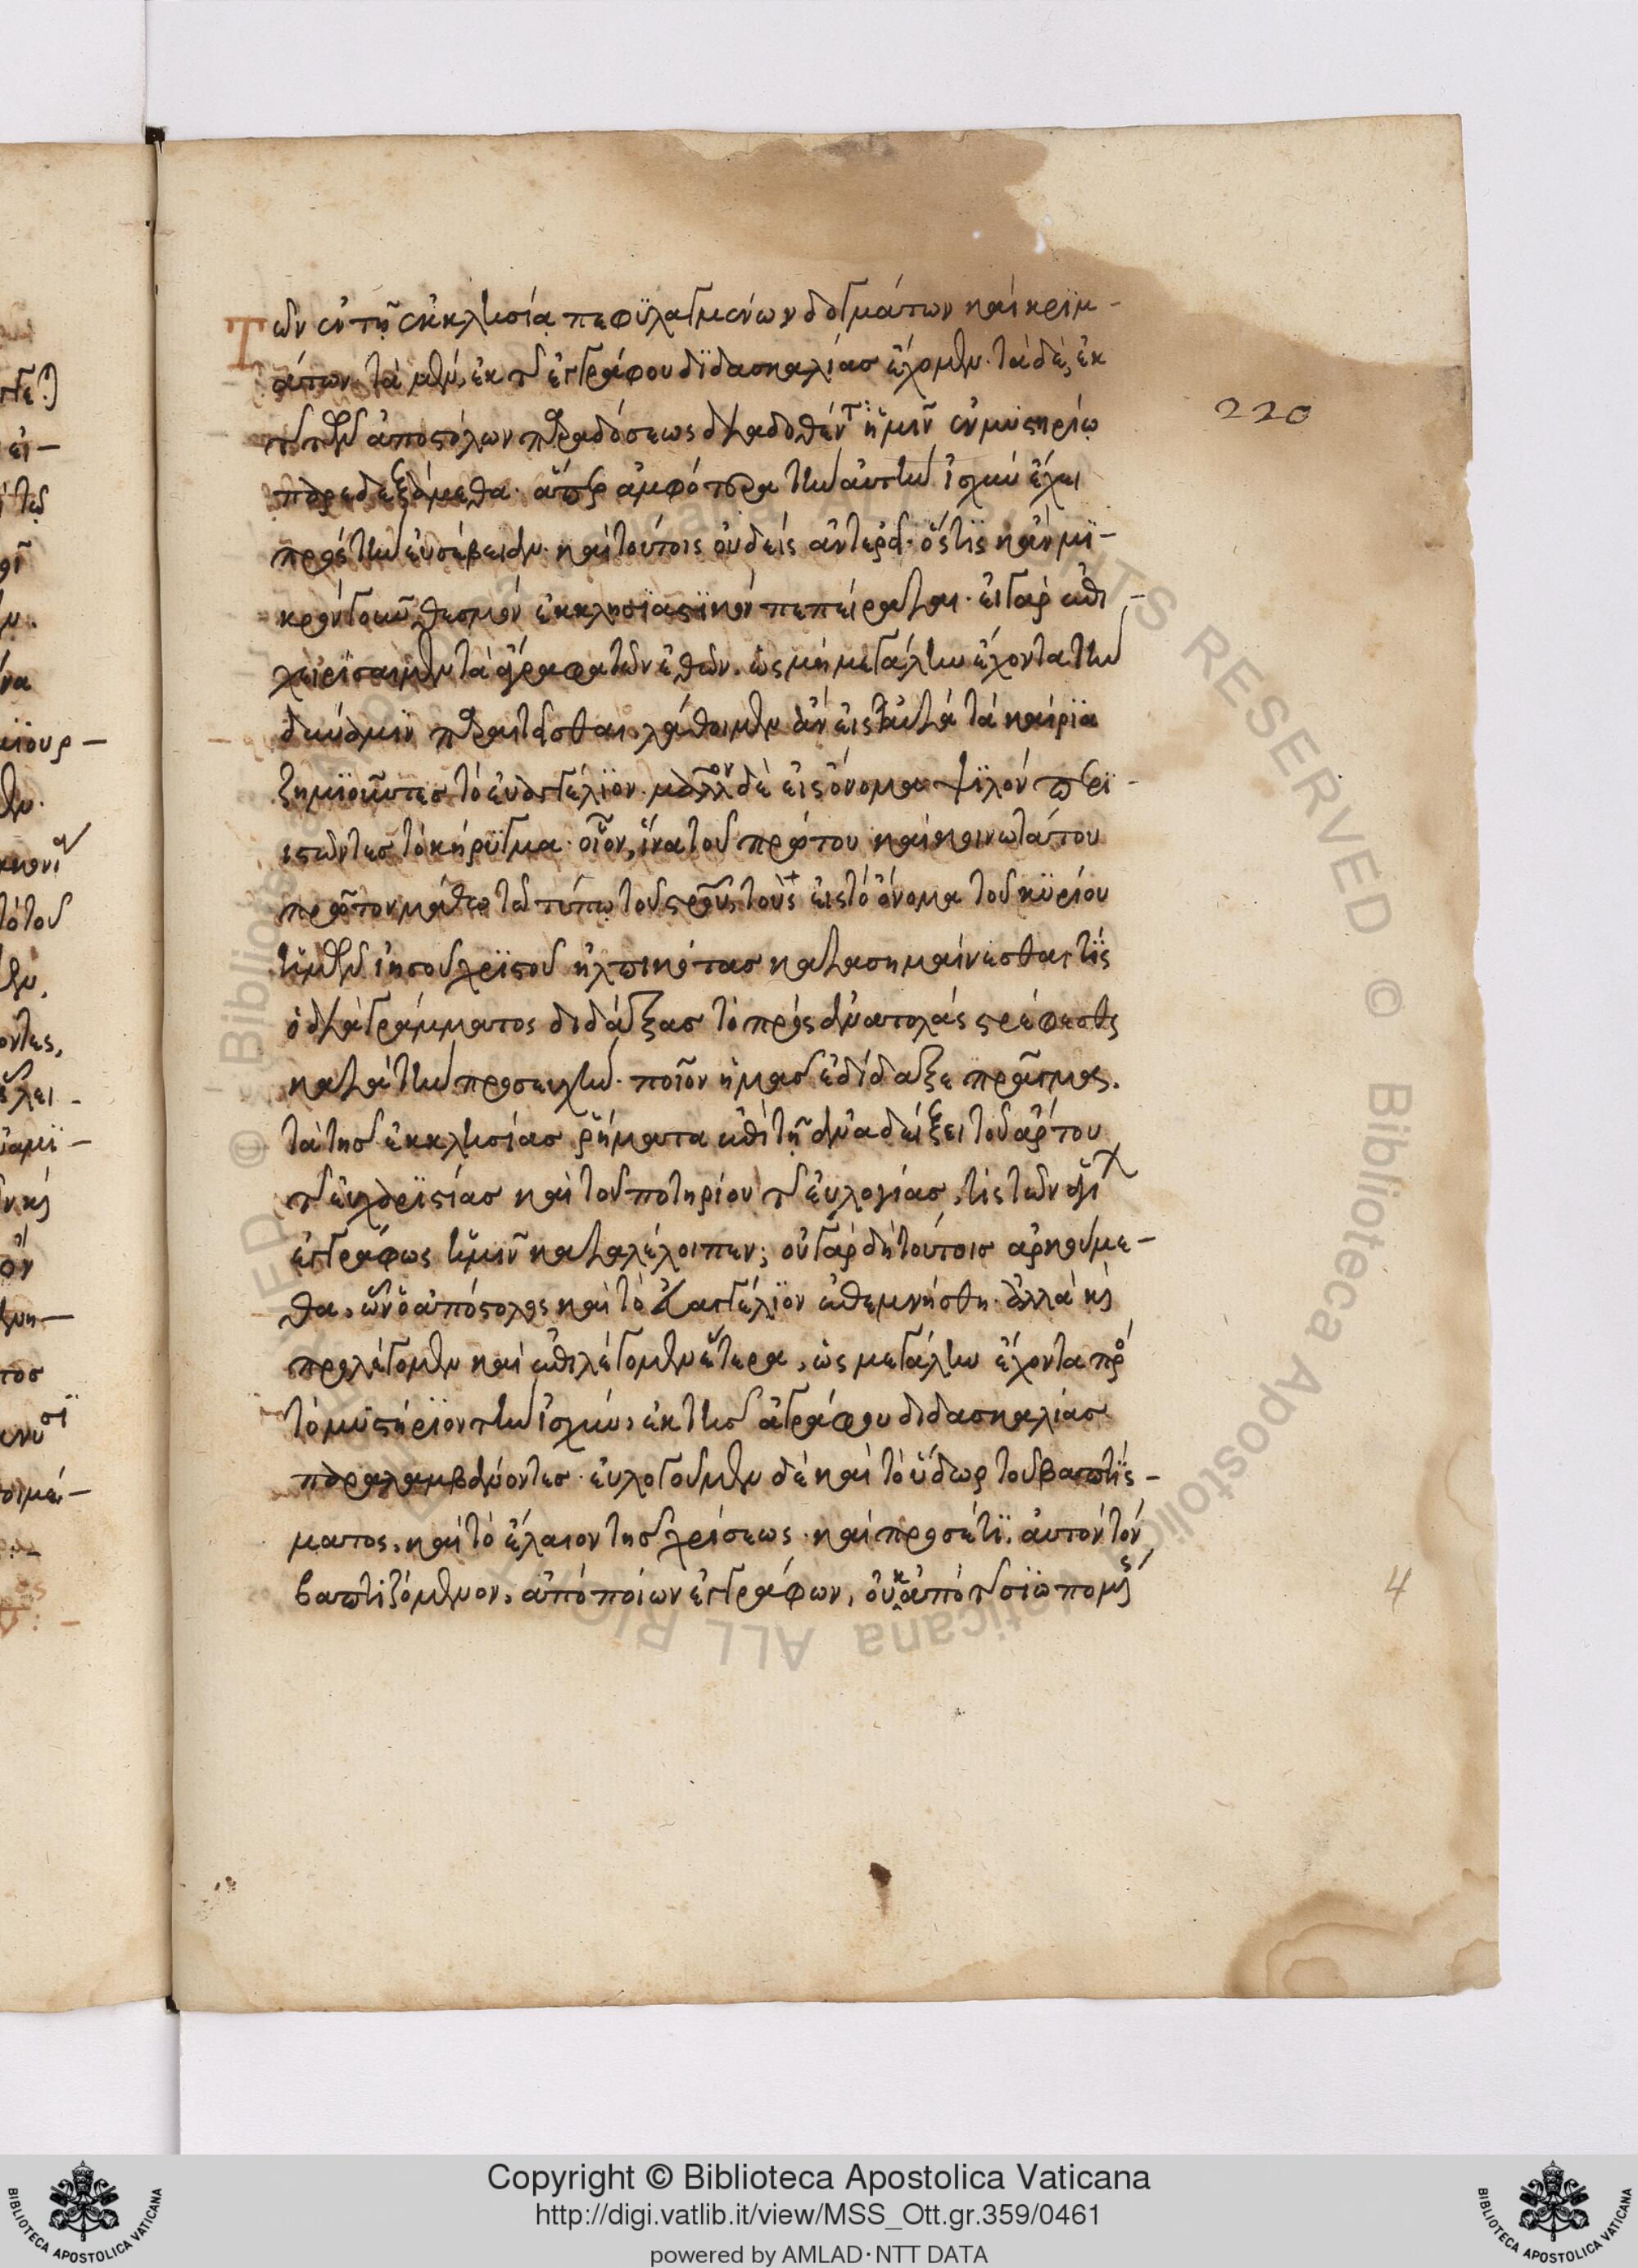 Τῶν ἐν τῇ ἐκκλησίᾳ πεφϋλαγμένων δογμάτων καὶ κριμ-
άτων. τὰ μὲν, ἐκ τῆς ἐγγράφου διδασκαλίας ἔχομεν. τὰ δὲ, ἐκ
τῆς τῶν ἀποστόλων παραδόσεως διαδοθέντ ἡμῖν ἐν μϋστηρίῳ
παρεδεξάμεθα. ἅπερ ἀμφότερα τὴν αὐτὴν ἰσχὺν ἔχει
πρὸς τὴν εὐσέβειαν. καὶ τούτοις οὐδεὶς ἀντερεῖ. ὅστις κἂν μϊ-
κρὸν γοῦν θεσμὸν ἐκκλησϊαστϊκὸν πεπείραται. εἰ γὰρ ἐπι-
χειρίσαιμεν τὰ ἄγραφα τῶν ἐθῶν. ὡς μὴ μεγάλην ἔχοντα τὴν
δύναμϊν παραιτεῖσθαι. λάθοιμεν ἂν εἰς αὐτὰ τὰ καίρϊα
ζημιοῦντες τὸ εὐαγγέλϊον. μᾶλλον δὲ εἰς ὄνομα ψϊλὸν περϊ-
ιστῶντες τὸ κήρϋγμα. οἷον, ἵνα τοῦ πρώτου καὶ κοινωτάτου
πρῶτον μάθω τῶ τύπῳ τοῦ στροῦ, τοὺς εἰς τὸ ὄνομα τοῦ κϋρίου
ἡμῶν ἰησοῦ χρϊστοῦ ἠλπικότας κατασημαίνεσθαι τίς
ὁ διὰ γράμματος διδάξας τὸ πρὸς ἀνατολὰς στρέφεσθαι
κατὰ τὴν προσευχὴν. ποῖον ἡμᾶς ἐδίδαξε πρᾶγμα.
τὰ τῆς ἐκκλησίας ῥήματα ἐπὶ τῇ ἀναδείξει τοῦ ἄρτου
τῆς εὐχαρϊστίας καὶ τοῦ ποτηρίου τῆς εὐλογίας, τίς τῶν ἁγί
ἐγγράφως ἡμῖν καταλέλοιπεν; οὐ γὰρ δὴ τούτοις ἀρκούμε-
θα, ὧν ὁ ἀπόστολος καὶ τὸ εὐαγγέλϊον ἐπεμνήσθη. ἀλλὰ καὶ
προλέγομεν καὶ ἐπιλέγομεν ἕτερα, ὡς μεγάλην ἔχοντα πρὸ
τὸ μϋστήρϊον τὴν ἰσχύν, ἐκ τῆς ἀγράφου διδασκαλίας
παραλαμβάνοντες. εὐλογοῦμεν δὲ καὶ τὸ ὕδωρ τοῦ βαπτίσ-
ματος, καὶ τὸ ἔλαιον τῆς χρίσεως. καὶ προσέτϊ. αὐτὸν τὸν
βαπτιζόμενον, ἀπὸ ποίων ἐγγράφων, οὐκ ἀπὸ τῆς σϊωπομέ
220
4
Copyright © Biblioteca Apostolica Vaticana
http://digi.vatlib.it/view/MSS_Ott.gr.359/0461
powered by AMLAD·NTT DATA
BIBLIOTECA APOSTOLICA VATICANA
BIBLIOTECA APOSTOLICA VATICANA